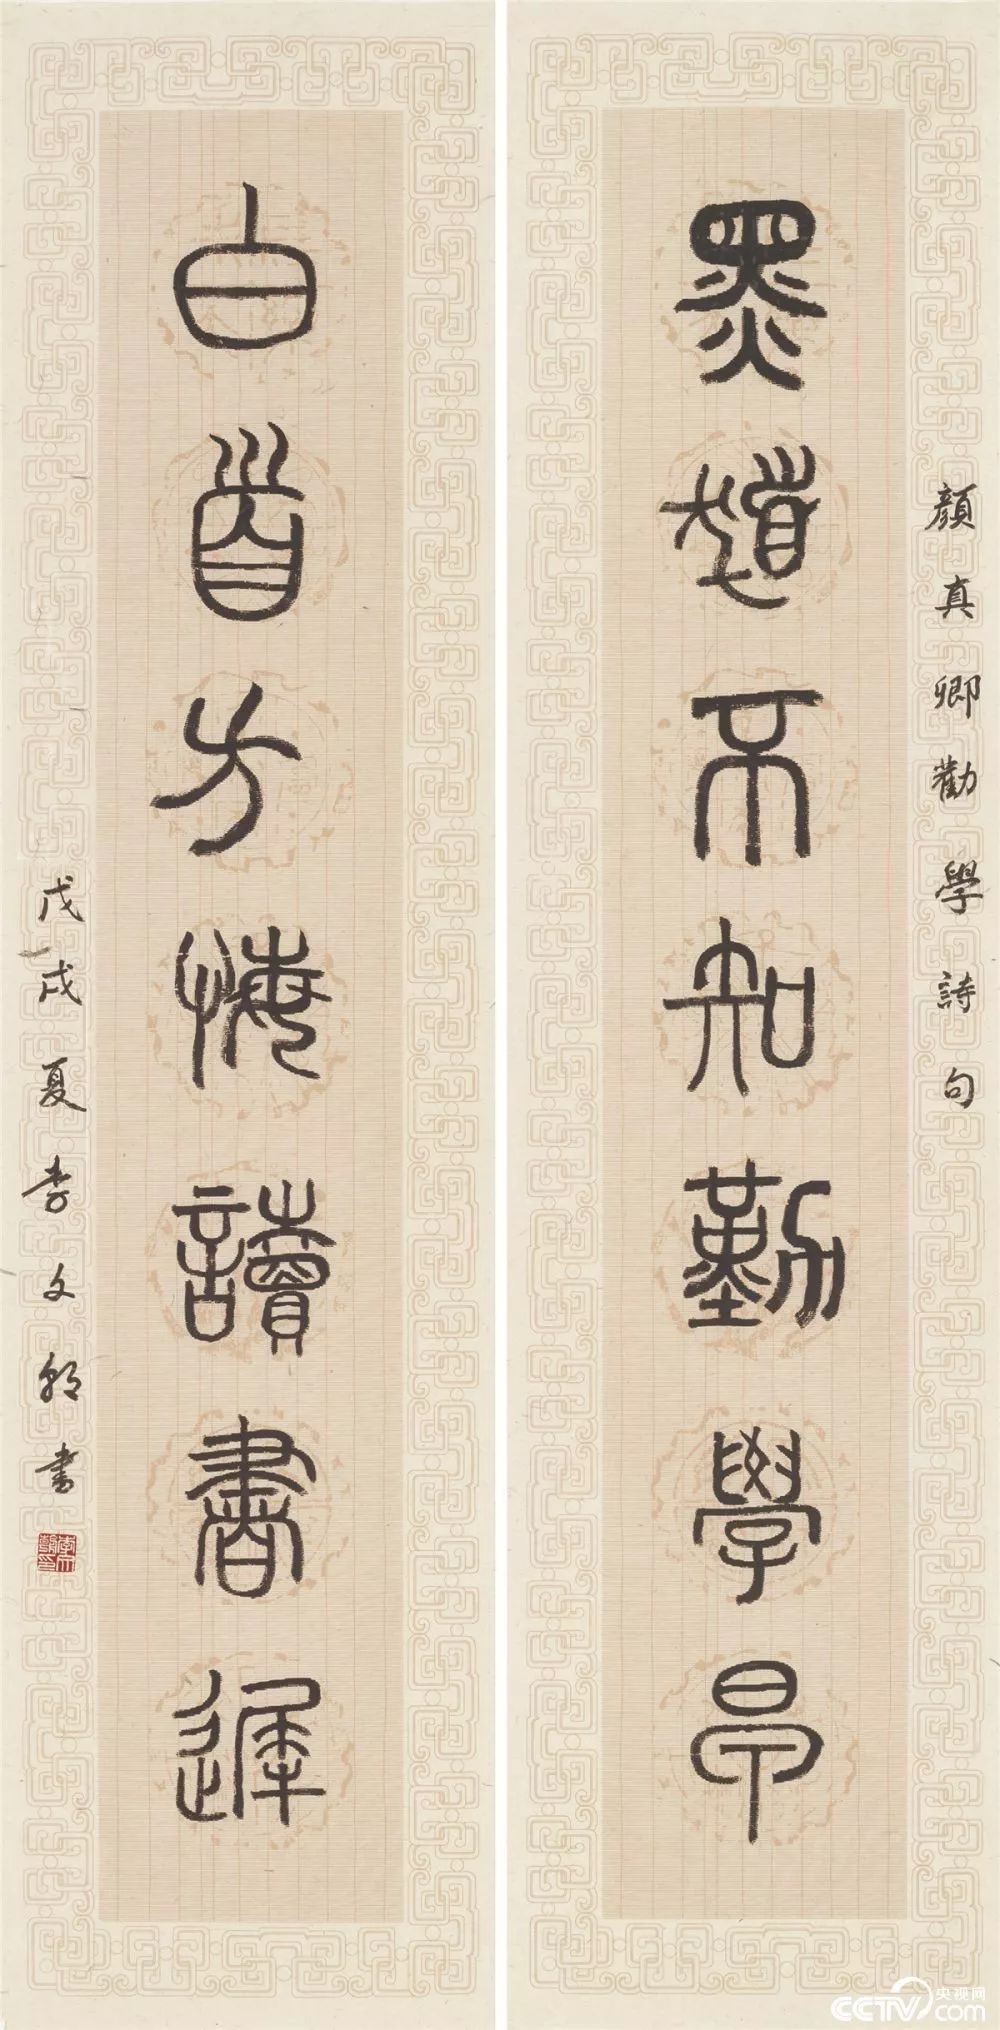 顔真卿勸學詩句
黑髮不知勤學早
白首方悔讀書遲
戊戌夏李文朝書
李文朝印
央视网
CCTV.com